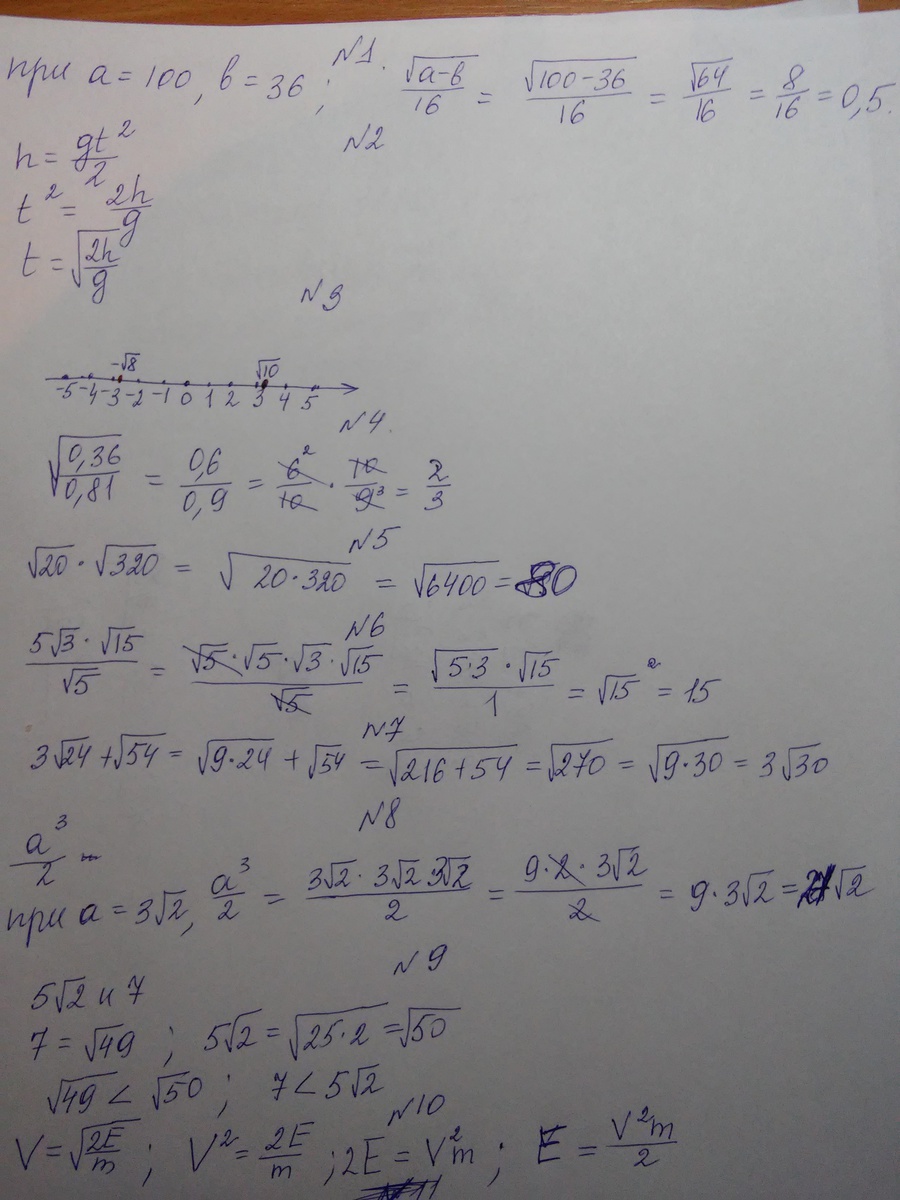 N1.
при a = 100, b = 36; √(a-b)/16 = √(100-36)/16 = √64/16 = 8/16 = 0,5.
N2
h = gt²/2
t² = 2h/g
t = √(2h/g)
N3
-√8 √10
-5 -4 -3 -2 -1 0 1 2 3 4 5
N4.
√(0,36/0,81) = 0,6/0,9 = 6²/10 · 10/9³ = 2/3
N5
√20 · √320 = √(20·320) = √6400 = 80
N6
5√3 · √15/√5 = √5·√5·√3·√15/√5 = √(5·3)·√15/1 = √15² = 15
N7
3√24 + √54 = √(9·24) + √54 = √(216+54) = √270 = √(9·30) = 3√30
N8
a³/2 -
при a = 3√2, a³/2 = 3√2 · 3√2 3√2/2 = 9·2·3√2/2 = 9·3√2 = √2
N9
5√2 и 7
7 = √49 ; 5√2 = √(25·2) = √50
√49 < √50 ; 7 < 5√2
N10
V = √(2E/m) ; V² = 2E/m ; 2E = V²m ; E = V²m/2
N11